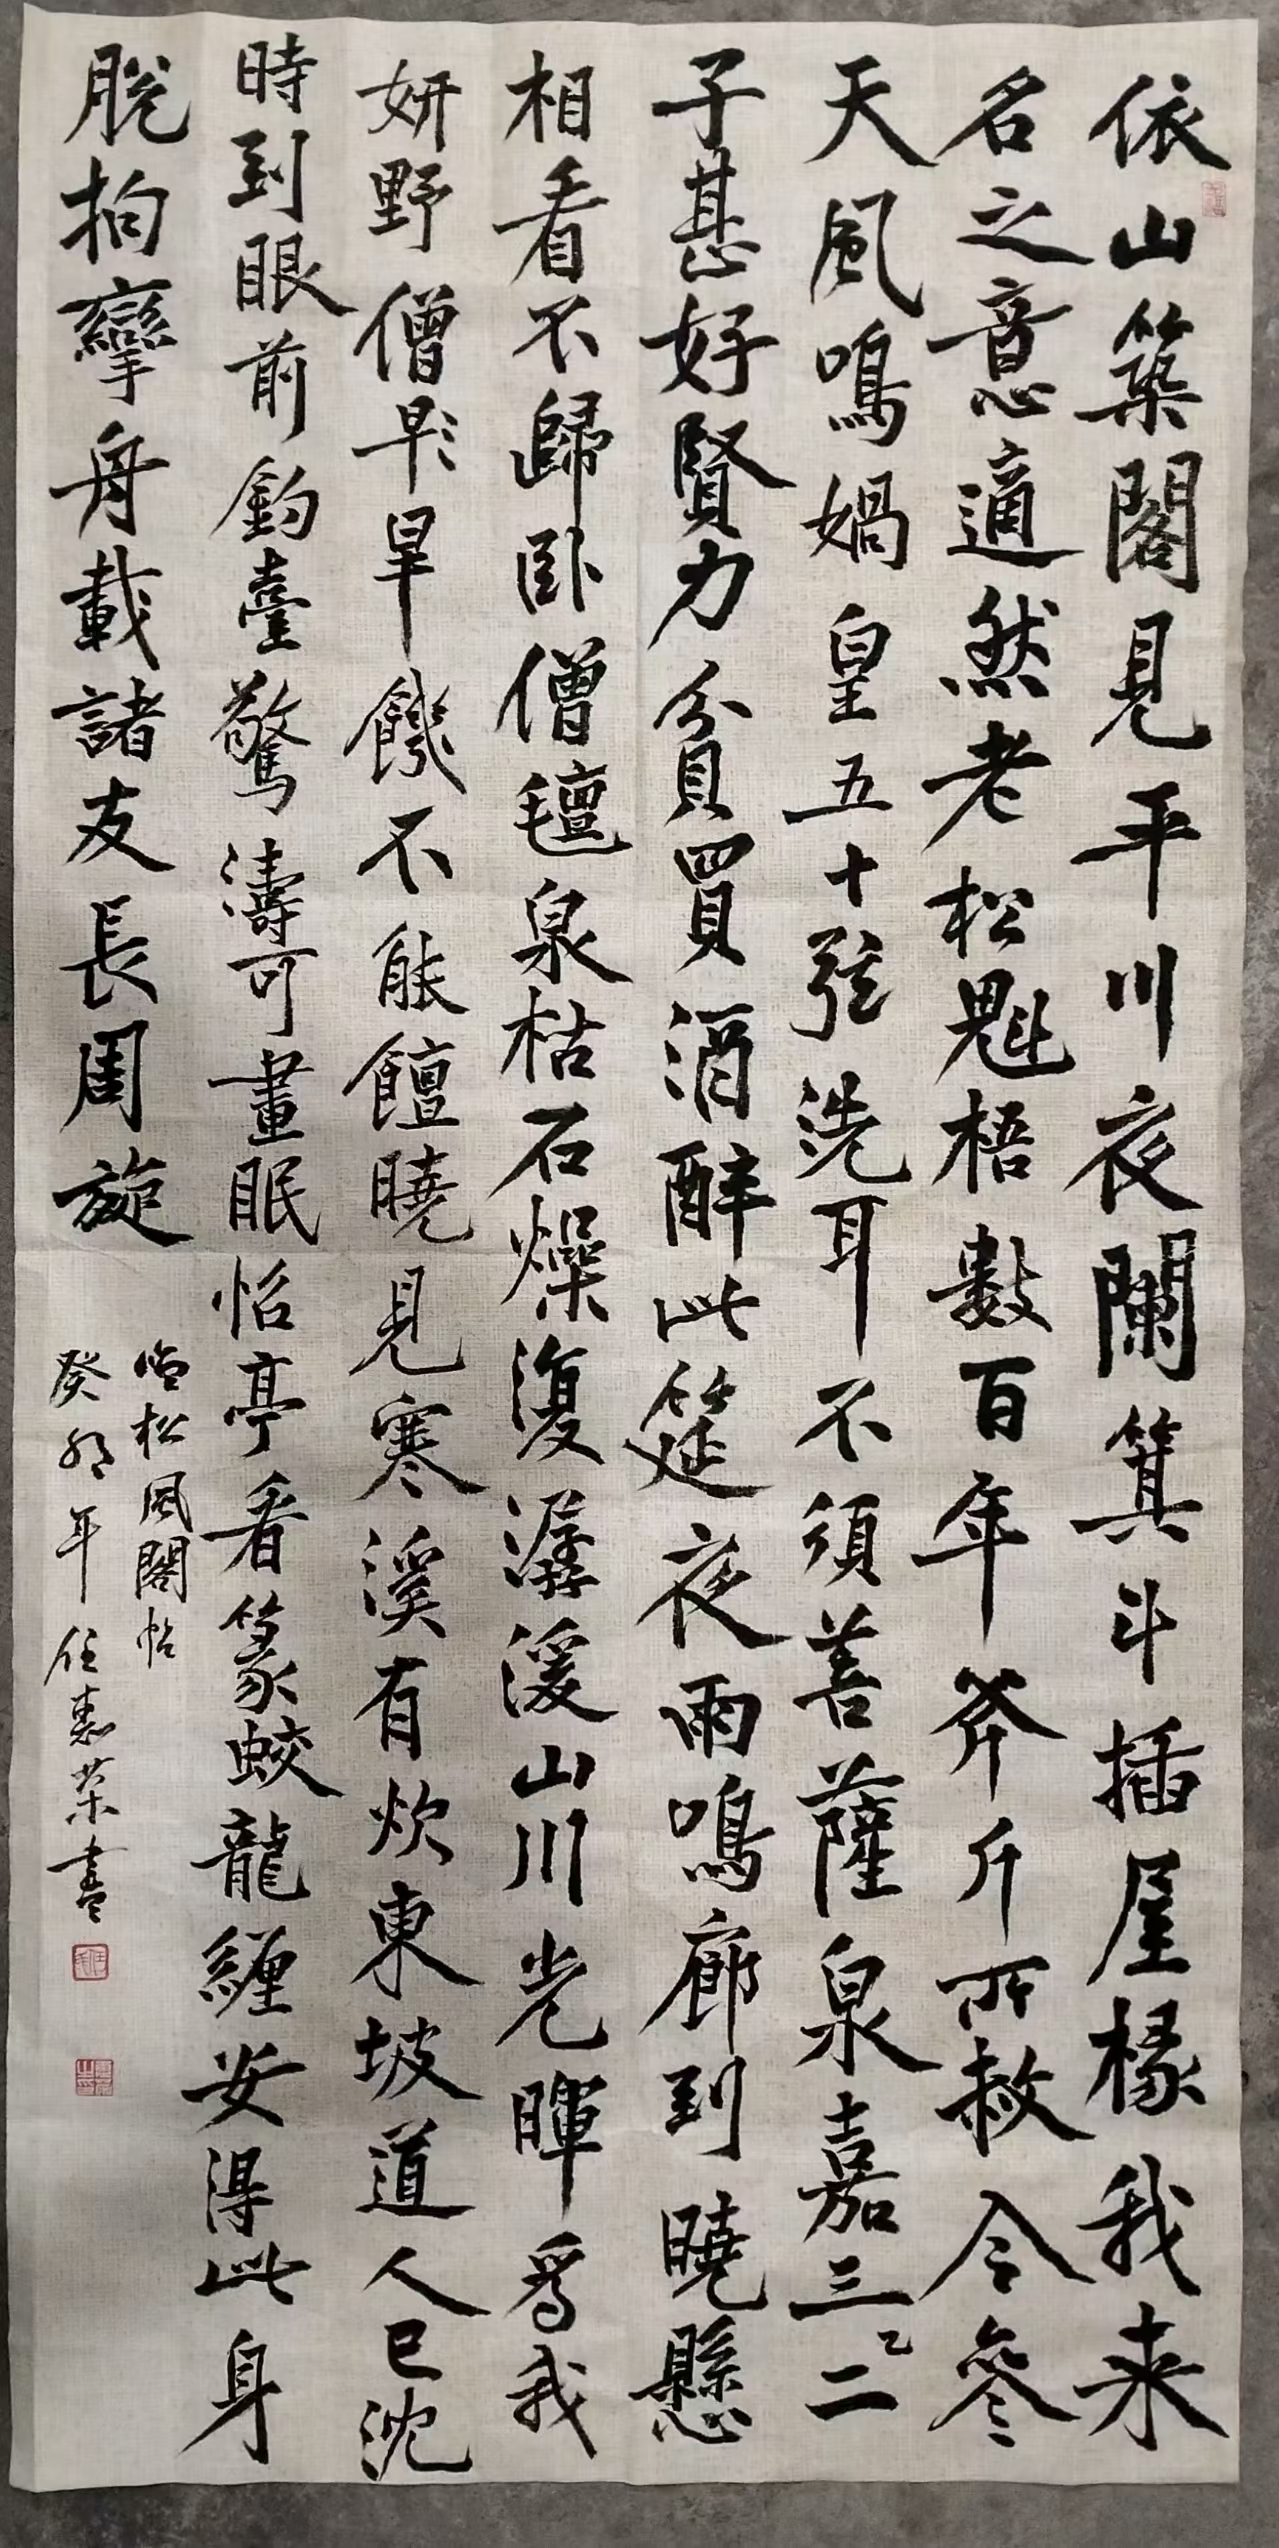 依山築閣見平川夜闌箕斗插屋椽我来
名之意適然老松魁梧數百年斧斤所赦今參
天風鳴媧皇五十弦洗耳不須菩薩泉嘉三二
子甚好賢力貧買酒醉此筵夜雨鳴廊到曉懸
相看不歸臥僧氈泉枯石燥復潺湲山川光暉為我
妍野僧早旱饑不能饘曉見寒溪有炊東坡道人已沈
時到眼前釣臺驚濤可晝眠怡亭看篆蛟龍纏安得此身
脫拘攣舟載諸友長周旋
临松風閣帖
癸卯年任惠荣書